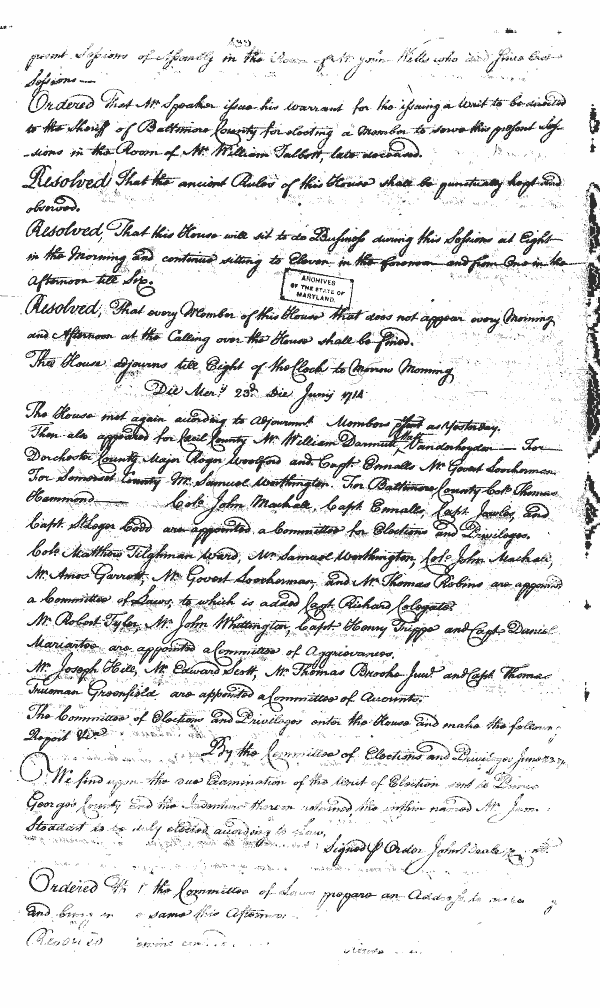 present Sessions of Assembly in the Room of Mr John Wells who died since last
Sessions
Ordered That Mr Speaker issue his Warrant for the issuing a Writ to be directed
to the Sheriff of Baltimore County for electing a Member to serve this present Ses
-sions in the Room of Mr William Talbott, late deceased.
Resolved That the ancient Rules of this House shall be punctually kept and
observed.
Resolved, That this House will sit to do Business during this Sessions at Eight
in the Morning and continue sitting to Eleven in the forenoon and from One in the
Afternoon till Six.
ARCHIVES
OF THE STATE OF
MARYLAND.
Resolved, That every Member of this House that does not appear every Morning
and Afternoon at the Calling over the House shall be fined.
The House adjourns till Eight of the Clock to Morrow Morning
Die Mer.y 23.d Die Junij 1714
The House met again according to Adjournmt. Members as Yesterday.
Then also appeared for Cecil County Mr William Vanderheyden For
Dorchester County Major Roger Woolford and Capt Ennalls Mr Govert Loockerman
For Somerset County Mr Samuel Worthington. For Baltimore County Colo Thomas
Hammond Colo John Mackall, Capt Ennalls, Capt Jowles, and
Capt St Leger Codd are appointed a Committee for Elections and Privileges.
Colo Matthew Tilghman Ward, Mr Samuel Worthington, Colo John Mackall,
Mr Amos Garrett, Mr Govert Loockerman, and Mr Thomas Robins are appointed
a Committee of Laws, to which is added Capt Richard Colegate
Mr Robert Tyler, Mr John Whittington, Capt Henry Trippe and Capt Daniel
Mariartee are appointed a Committee of Aggrievances.
Mr Joseph Hill, Mr Edward Scott, Mr Thomas Brooke Junr and Capt Thomas
Trueman Greenfield are appointed a Committee of Accounts.
The Committee of Elections and Privileges enter the House and make the follow:
Report Vizt
By the Committee of Elections and Privileges June 23
We find upon the due Examination of the Writ of Election sent to Prince
George's County and the Indenture therein returned the within named Mr Jam:
Stoddart is duly elected according to Law.
Signed p Order John Beale
Ordered the Committee of Laws prepare an Address to
and bring in same this Afternoon
Resolved